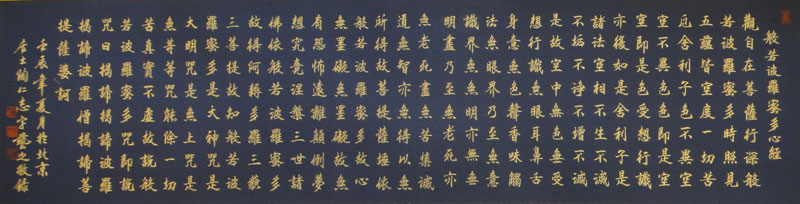 般若波羅蜜多心經
觀自在菩薩行深般
若波羅蜜多時照見
五蘊皆空度一切苦
厄舍利子色不異空
空不異色色即是空
空即是色受想行識
亦復如是舍利子是
諸法空相不生不滅
不垢不淨不增不減
是故空中無色無受
想行識無眼耳鼻舌
身意無色聲香味觸
法無眼界乃至無意
識界無無明亦無無
明盡乃至無老死亦
無老死盡無苦集滅
道無智亦無得以無
所得故菩提薩埵依
般若波羅蜜多故心
無罣礙無罣礙故無
有恐怖遠離顛倒夢
想究竟涅槃三世諸
佛依般若波羅蜜多
故得阿耨多羅三藐
三菩提故知般若波
羅蜜多是大神咒是
大明咒是無上咒是
無等等咒能除一切
苦真實不虛故說般
若波羅蜜多咒即說
咒曰揭諦揭諦波羅
揭諦波羅僧揭諦菩
提薩婆訶
壬辰年夏月於北京
居士陶仁志字之敬錄